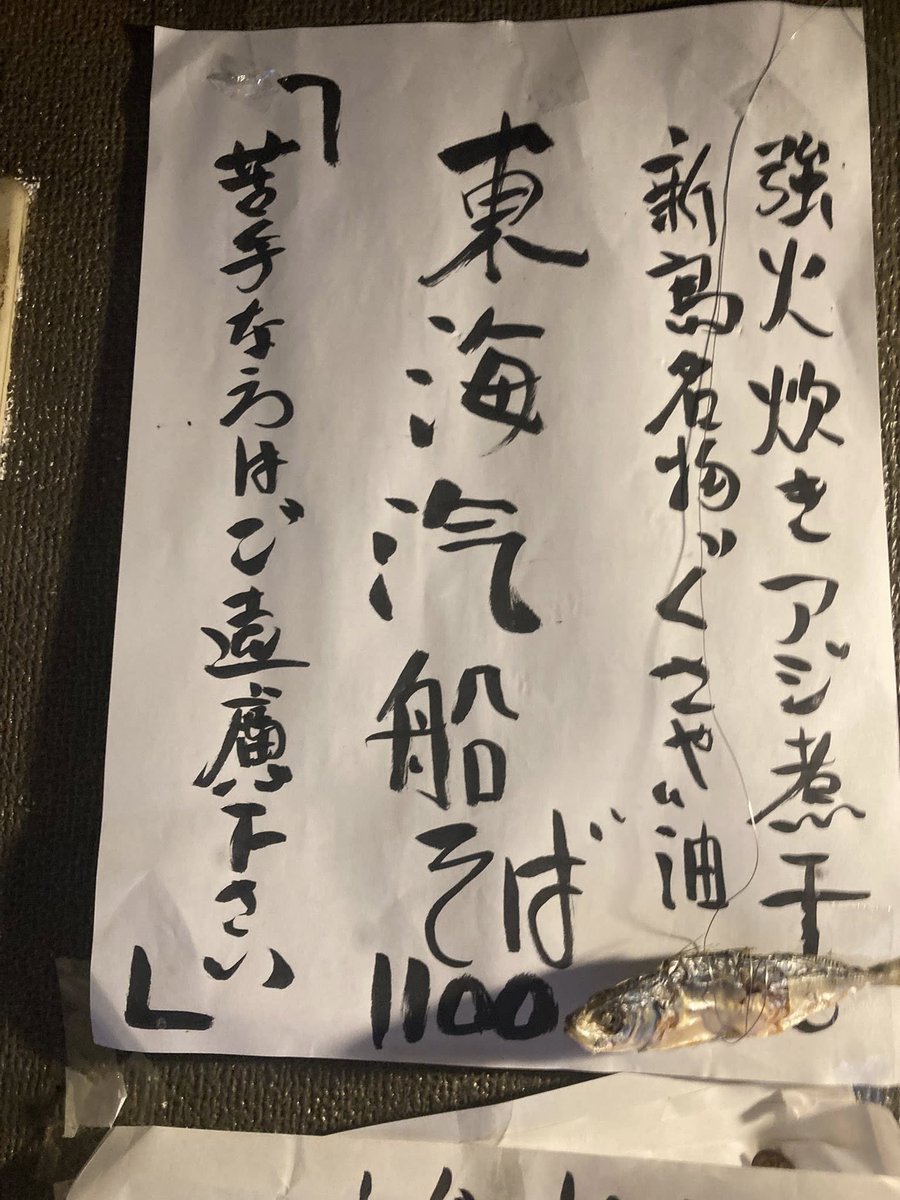 強火炊きアジ煮干し
新島名物"くさや"油
東海汽船そば
1100
「苦手な方はご遠慮下さい」